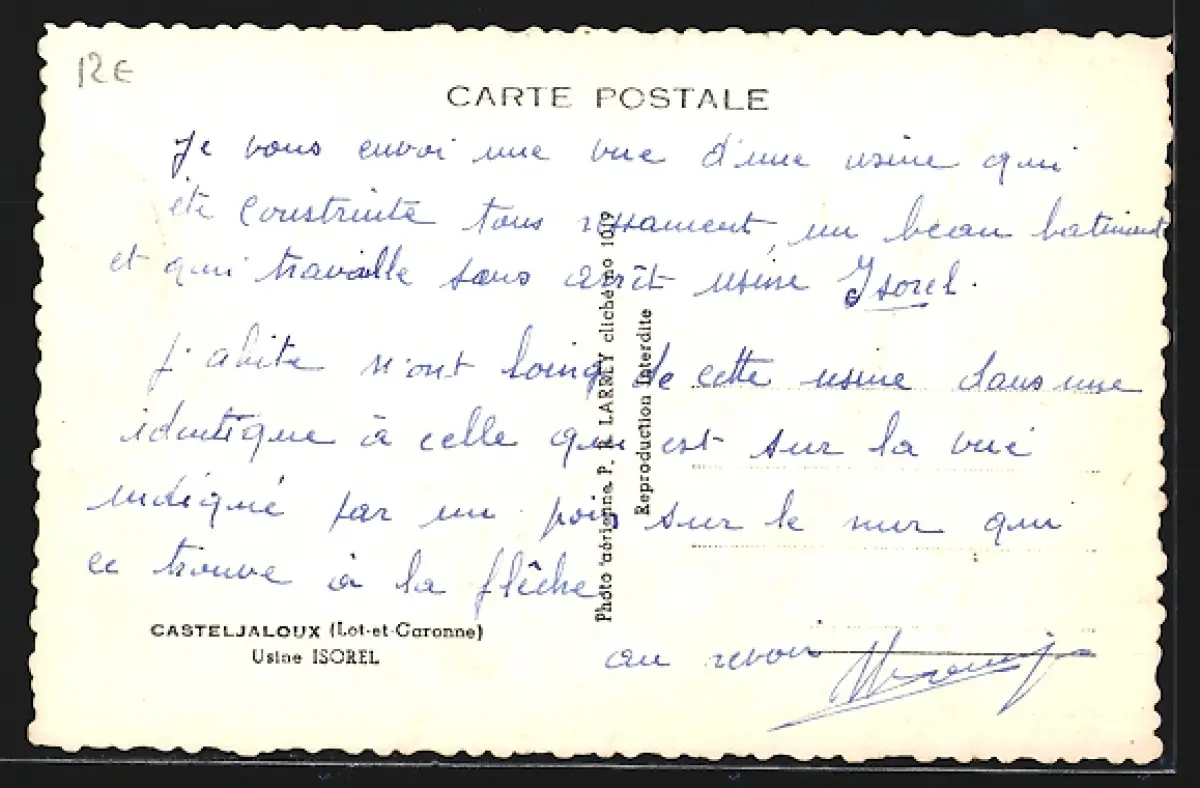 12€
CARTE POSTALE
Je vous envoi une vue d'une usine qui
été construite tous ressament, un beau batiment
et qui travaille sans arrêt usine Isorel.
j. abite n'ont loing de cette usine dans une
identique à celle qui est sur la vue
indiqué par un poin sur le mur qui
ce trouve à la flêche
CASTELJALOUX (Lot-et-Garonne)
Usine ISOREL
au revoir
Photo aérienne P. R. LARREY cliché no 1019
Reproduction Interdite